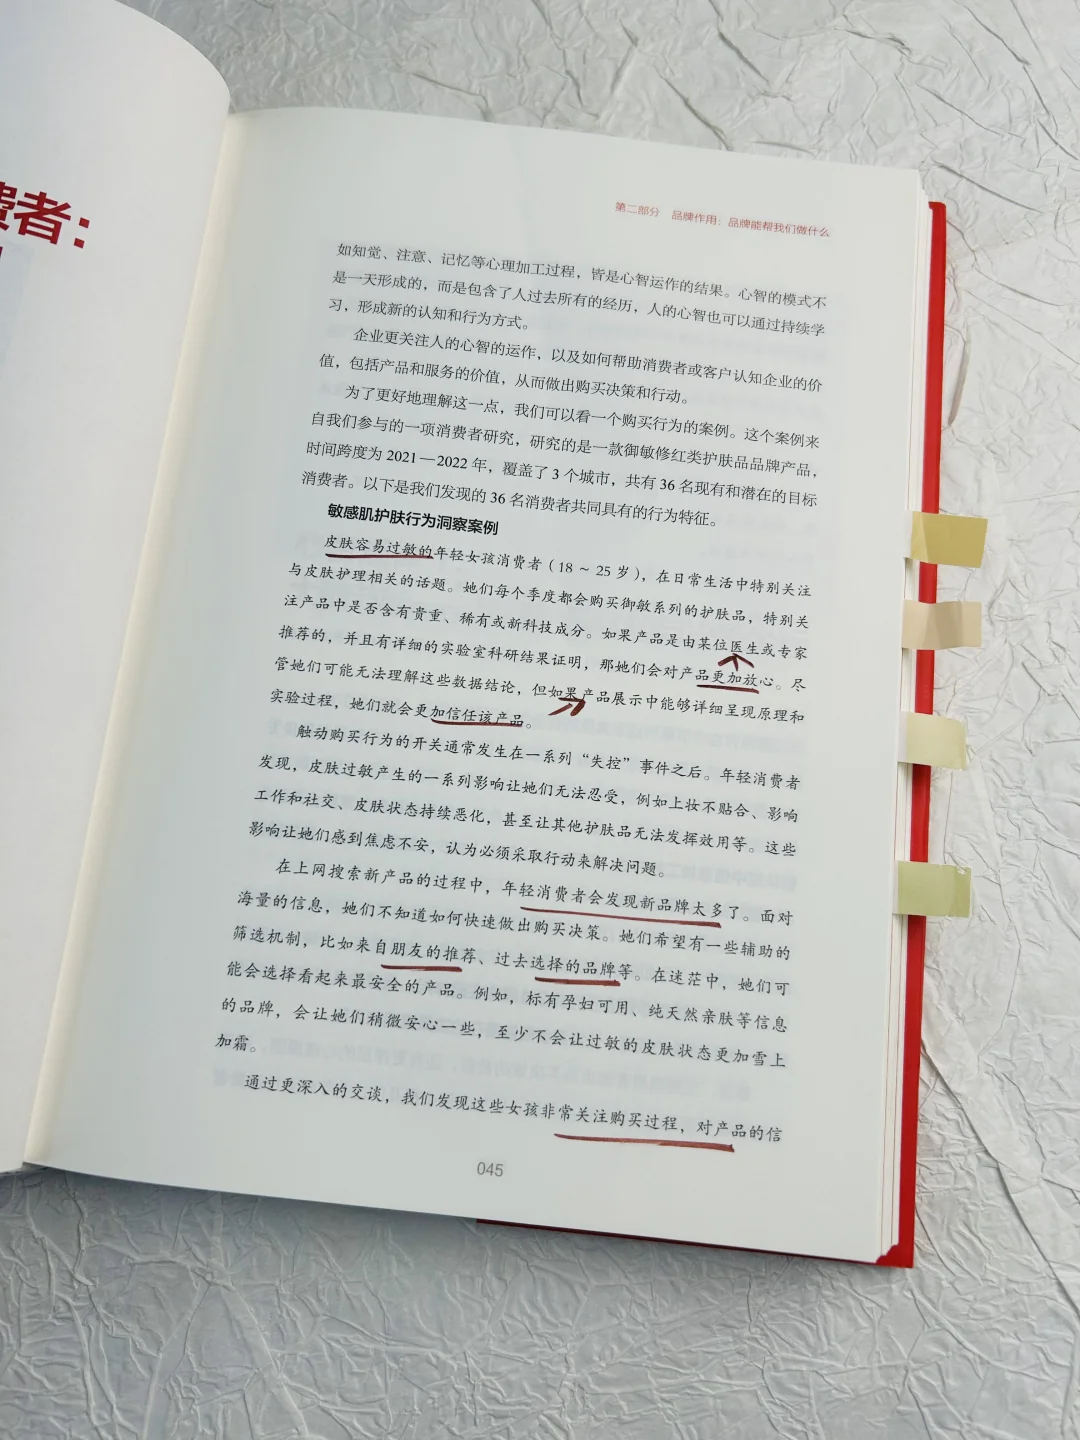 费者：
第二部分 品牌作用：品牌能帮我们做什么
如知觉、注意、记忆等心理加工过程，皆是心智运作的结果。心智的模式不
是一天形成的，而是包含了人过去所有的经历，人的心智也可以通过持续学
习，形成新的认知和行为方式。
企业更关注人的心智的运作，以及如何帮助消费者或客户认知企业的价
值，包括产品和服务的价值，从而做出购买决策和行动。
为了更好地理解这一点，我们可以看一个购买行为的案例。这个案例来
自我们参与的一项消费者研究，研究的是一款御敏修红类护肤品品牌产品，
时间跨度为 2021—2022 年，覆盖了 3 个城市，共有 36 名现有和潜在的目标
消费者。以下是我们发现的 36 名消费者共同具有的行为特征。
敏感肌护肤行为洞察案例
皮肤容易过敏的年轻女孩消费者（18 ~ 25 岁），在日常生活中特别关注
与皮肤护理相关的话题。她们每个季度都会购买御敏系列的护肤品，特别关
注产品中是否含有贵重、稀有或新科技成分。如果产品是由某位医生或专家
推荐的，并且有详细的实验室科研结果证明，那她们会对产品更加放心。尽
管她们可能无法理解这些数据结论，但如果产品展示中能够详细呈现原理和
实验过程，她们就会更加信任该产品。
触动购买行为的开关通常发生在一系列“失控”事件之后。年轻消费者
发现，皮肤过敏产生的一系列影响让她们无法忍受，例如上妆不贴合、影响
工作和社交、皮肤状态持续恶化，甚至让其他护肤品无法发挥效用等。这些
影响让她们感到焦虑不安，认为必须采取行动来解决问题。
在上网搜索新产品的过程中，年轻消费者会发现新品牌太多了。面对
海量的信息，她们不知道如何快速做出购买决策。她们希望有一些辅助的
筛选机制，比如来自朋友的推荐、过去选择的品牌等。在迷茫中，她们可
能会选择看起来最安全的产品。例如，标有孕妇可用、纯天然亲肤等信息
的品牌，会让她们稍微安心一些，至少不会让过敏的皮肤状态更加雪上
加霜。
通过更深入的交谈，我们发现这些女孩非常关注购买过程，对产品的信
045